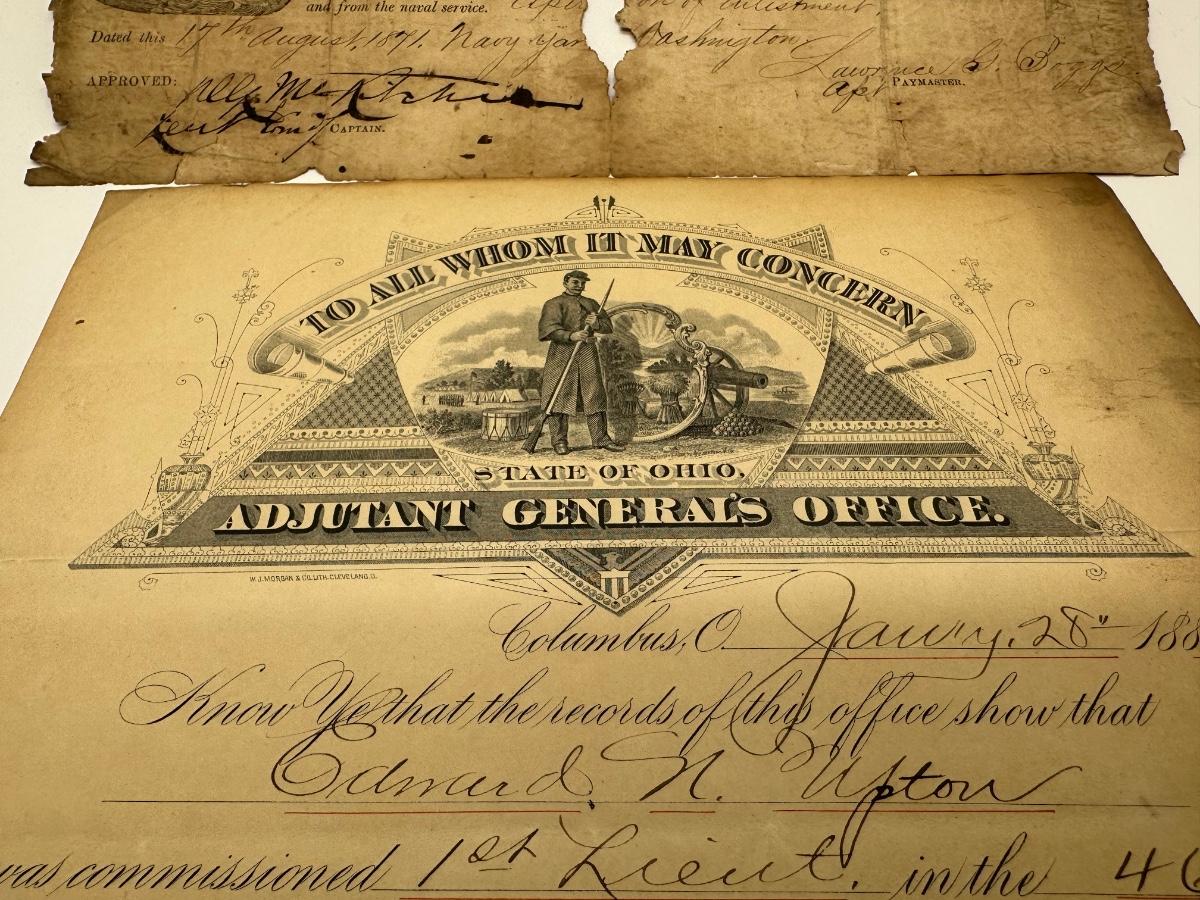 and from the naval service. of enlistment.
Dated this 17th August, 1871. Navy Yar Washington
Lawrence G. Boggs
APPROVED: PAYMASTER.
CAPTAIN.
TO ALL WHOM IT MAY CONCERN
STATE OF OHIO.
ADJUTANT GENERAL'S OFFICE.
W.J. MORGAN & CO. LITH. CLEVELAND. O.
Columbus, O. Jan'ry. 28" 188
Know Ye that the records of this office show that
Edward N. Upton
was commissioned 1st Lieut. in the 46